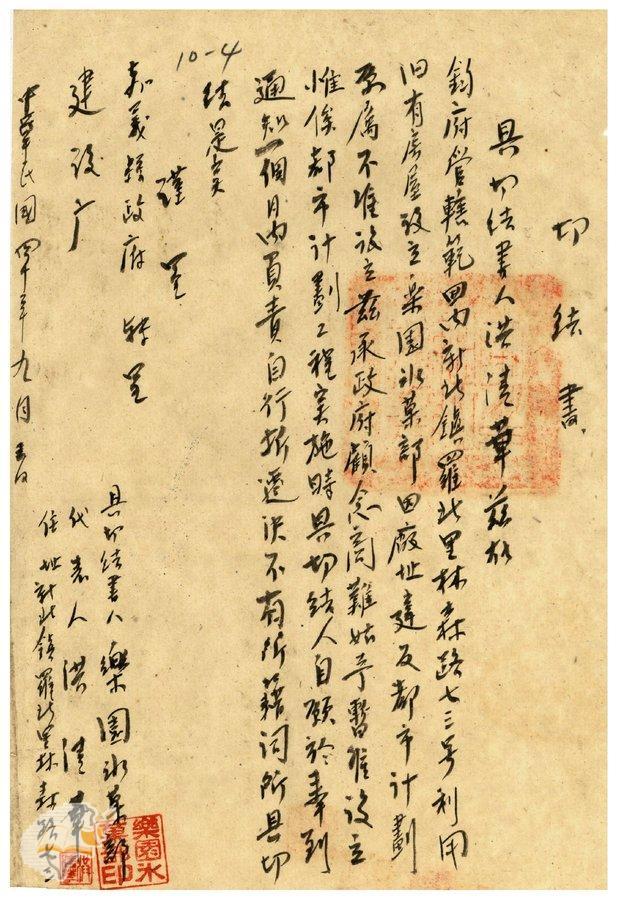 切結書
具切結書人洪清華茲於
鈞府管轄範囲內新北鎮羅北里林森路七三号利用
旧有房屋設立樂園冰菓部因廠址違反都市計劃
原属不准設立茲承政府顧念商難姑予暫准設立
惟俟都市計劃工程实施時具切結人自願於奉到
通知一個月內負責自行拆遷決不有所藉词所具切
結是实
10-4
謹呈
嘉義縣政府 轉呈
建設厅
具切結書人樂園冰菓部
代表人洪清華
住址新北鎮羅北里林森路七三
中華民國四十年九月 日
樂園冰菓印